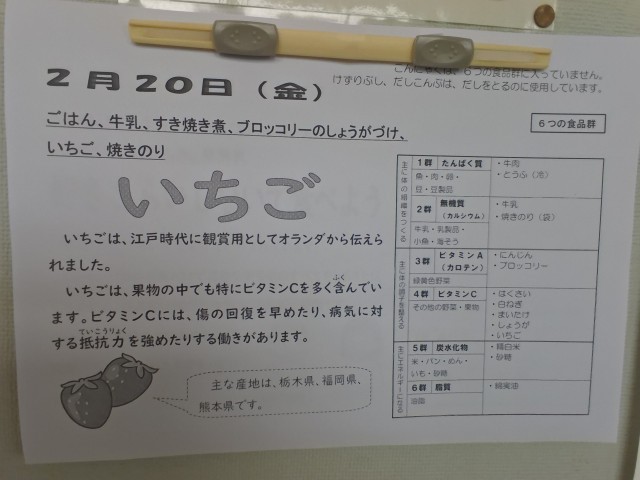 ２月２０日（金）
こんにゃくは、６つの食品群に入っていません。
けずりぶし、だしこんぶは、だしをとるのに使用しています。
ごはん、牛乳、すき焼き煮、ブロッコリーのしょうがづけ、
いちご、焼きのり
６つの食品群
いちご
いちごは、江戸時代に観賞用としてオランダから伝えら
れました。
いちごは、果物の中でも特にビタミンCを多く含んでい
ふく
ます。ビタミンCには、傷の回復を早めたり、病気に対
ていこうりょく
する抵抗力を強めたりする働きがあります。
主な産地は、栃木県、福岡県、
熊本県です。
主に体の組織をつくる
１群 たんぱく質
魚・肉・卵・
豆・豆製品
・牛肉
・とうふ（冷）
２群 無機質
（カルシウム）
牛乳・乳製品・
小魚・海そう
・牛乳
・焼きのり（袋）
主に体の調子を整える
３群 ビタミンA
（カロテン）
緑黄色野菜
・にんじん
・ブロッコリー
４群 ビタミンC
その他の野菜・果物
・はくさい
・白ねぎ
・まいたけ
・しょうが
・いちご
主にエネルギーになる
５群 炭水化物
米・パン・めん・
いも・砂糖
・精白米
・砂糖
６群 脂質
油脂
・綿実油